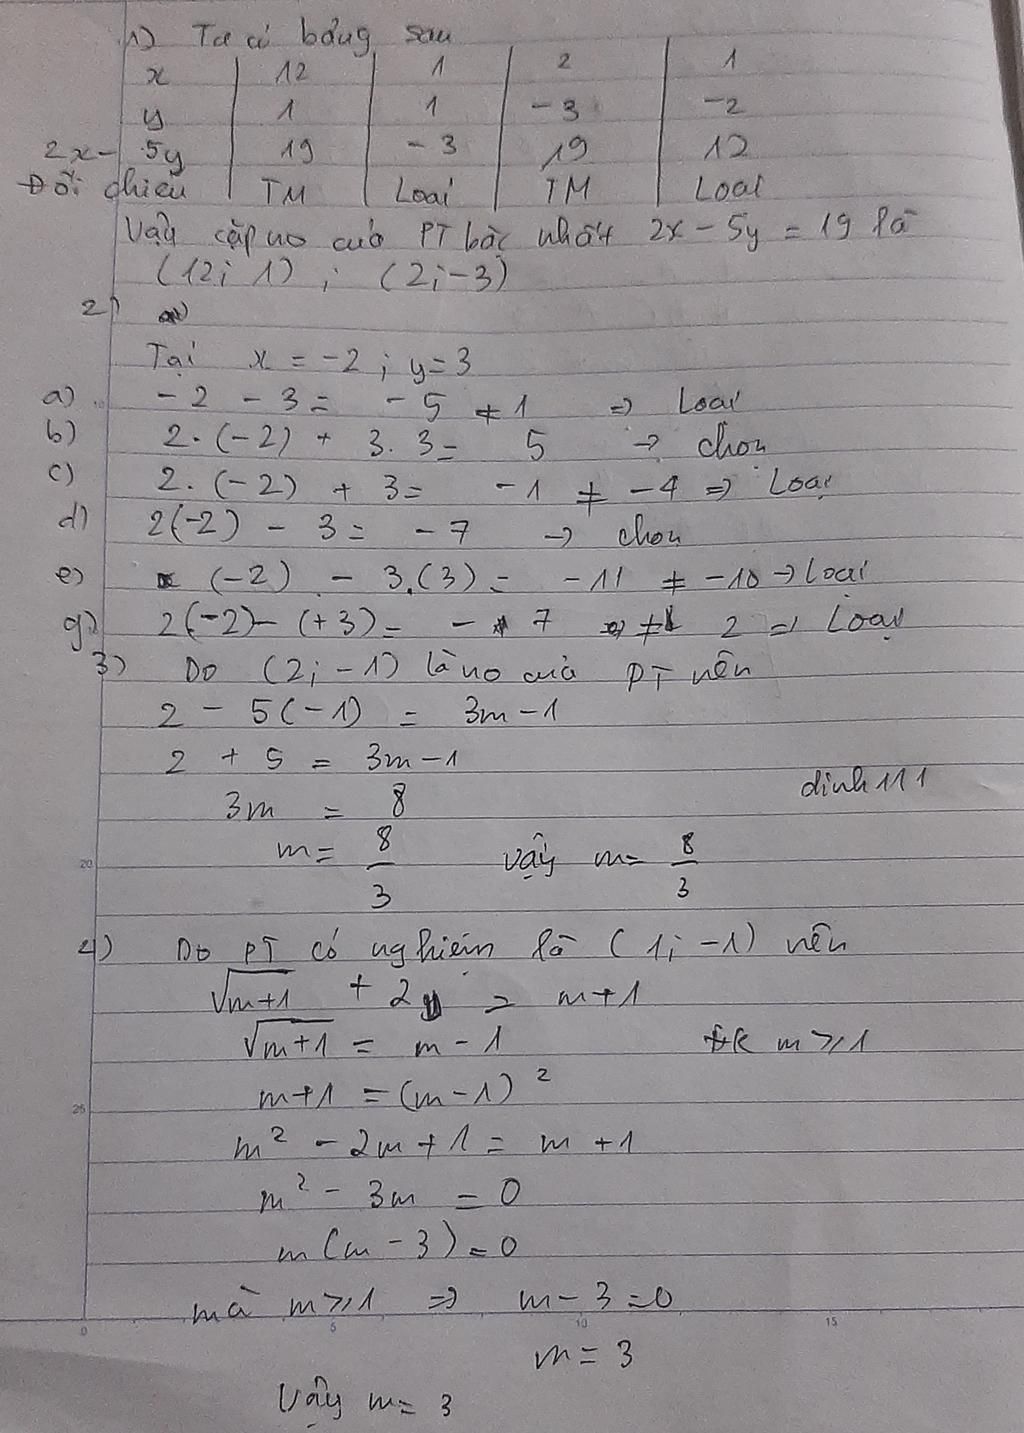 1) Ta có bảng sau
x | 12 | 1 | 2 | 1
y | 1 | 1 | -3 | -2
2x - 5y | 19 | -3 | 19 | 12
Đối chiếu | TM | Loại | TM | Loại
Vậy cặp no của PT bậc nhất 2x - 5y = 19 là
(12; 1) ; (2; -3)
2)
Tại x = -2 ; y = 3
a) -2 - 3 = -5 ≠ 1 => Loại
b) 2.(-2) + 3.3 = 5 -> chọn
c) 2.(-2) + 3 = -1 ≠ -4 => Loại
d) 2(-2) - 3 = -7 -> chọn
e) (-2) - 3.(3) = -11 ≠ -10 -> Loại
g) 2(-2) - (+3) = -7 ≠ 2 => Loại
3) Do (2; -1) là no của PT nên
2 - 5(-1) = 3m - 1
2 + 5 = 3m - 1
dinh111
3m = 8
m = 8/3 Vậy m = 8/3
4) Do PT có nghiệm là (1; -1) nên
√m+1 + 2 = m + 1
√m+1 = m - 1 ĐK m ≥ 1
m + 1 = (m - 1)²
m² - 2m + 1 = m + 1
m² - 3m = 0
m(m - 3) = 0
mà m ≥ 1 => m - 3 = 0
m = 3
Vậy m = 3